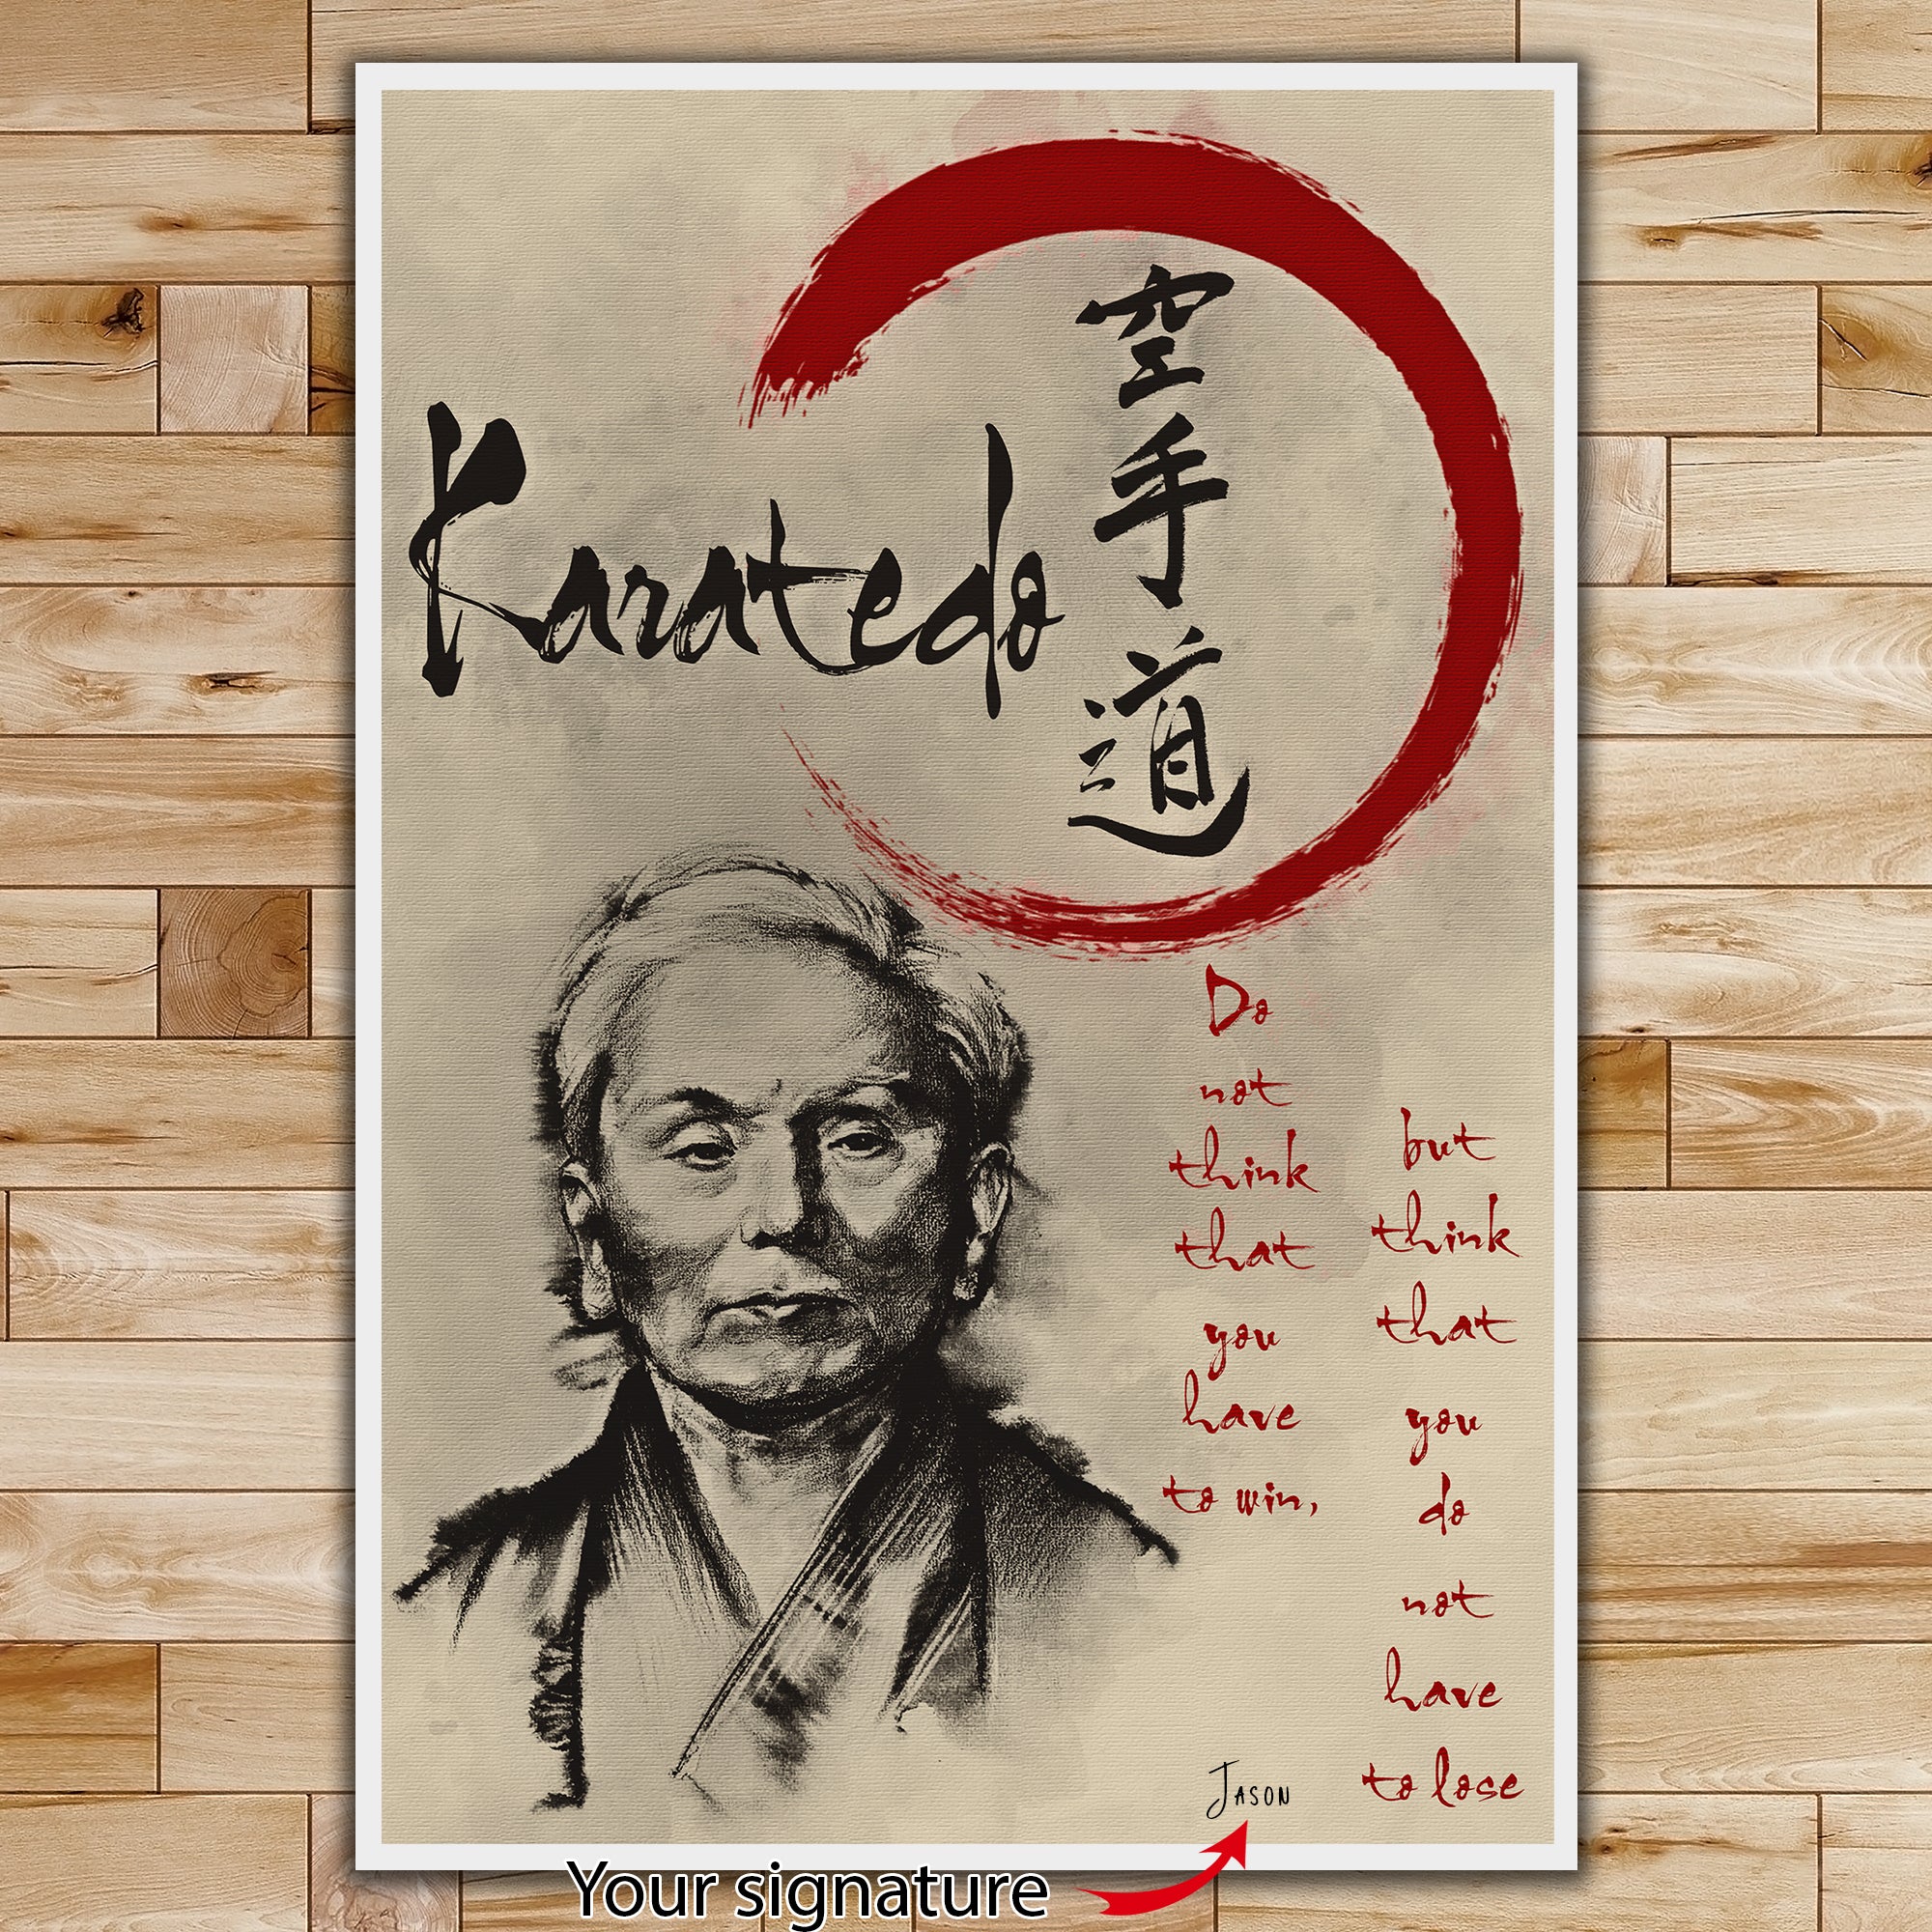 Karatedo
空
手
道
Do
not
think
that
you
have
to win,
but
think
that
you
do
not
have
to lose
Jason
Your signature